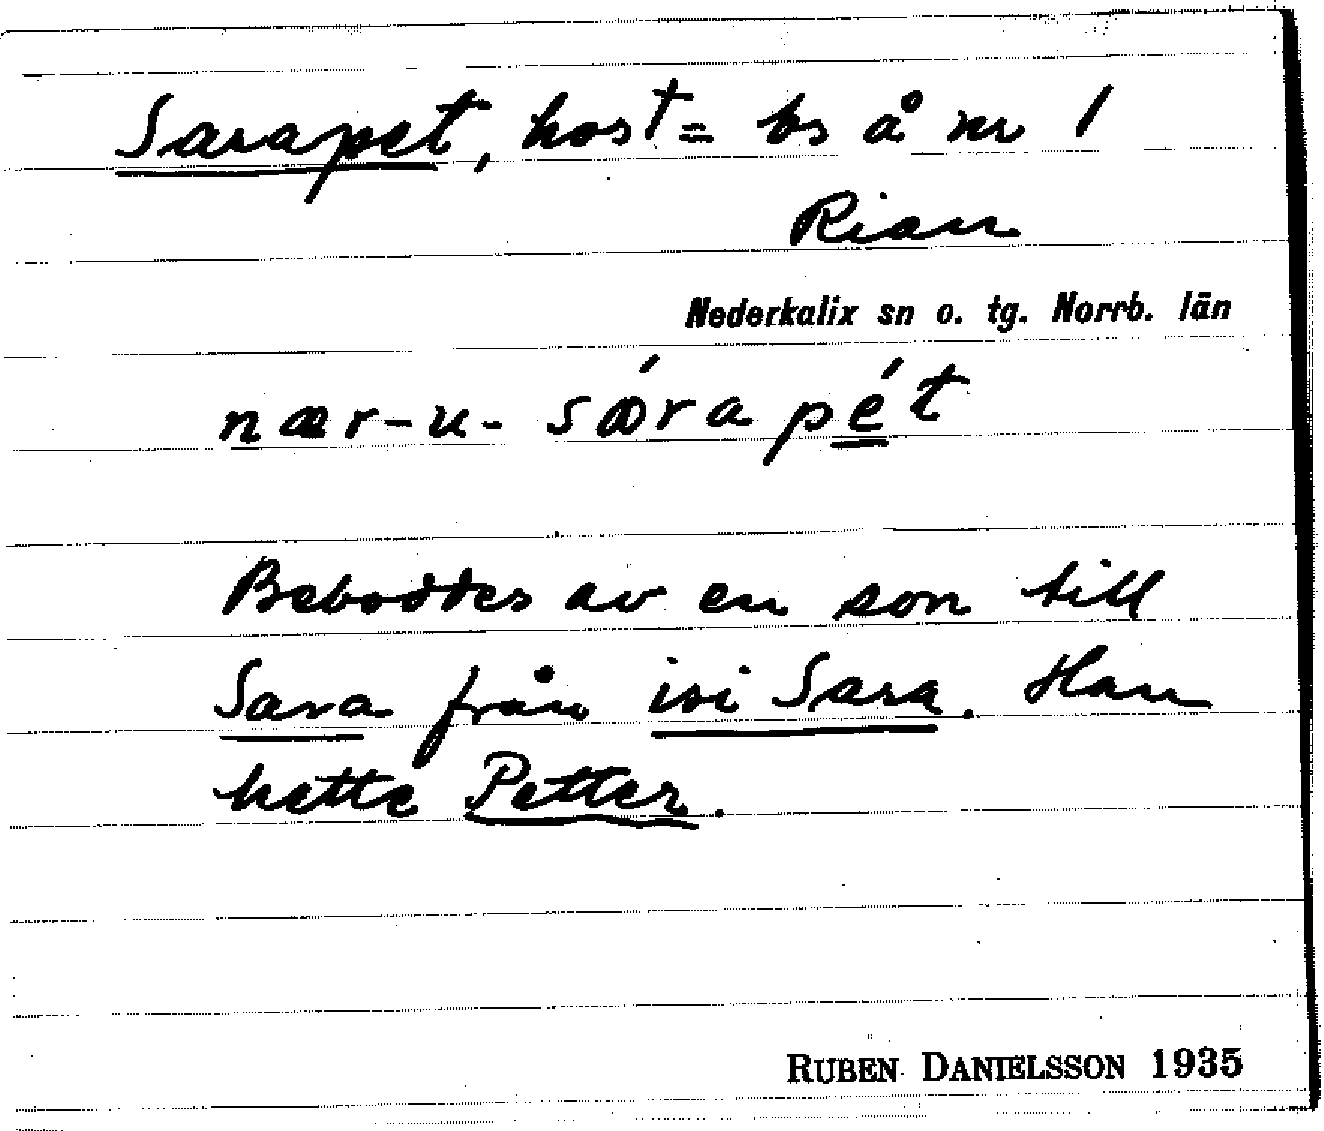 Sarapet, host = bs å nr 1
Rian
Nederkalix sn o. tg. Norrb. län
nær-u- sǽrapét
Beboddes av en son till
Sara från ivi Sara. Han
hette Petter.
RUBEN DANIELSSON 1935